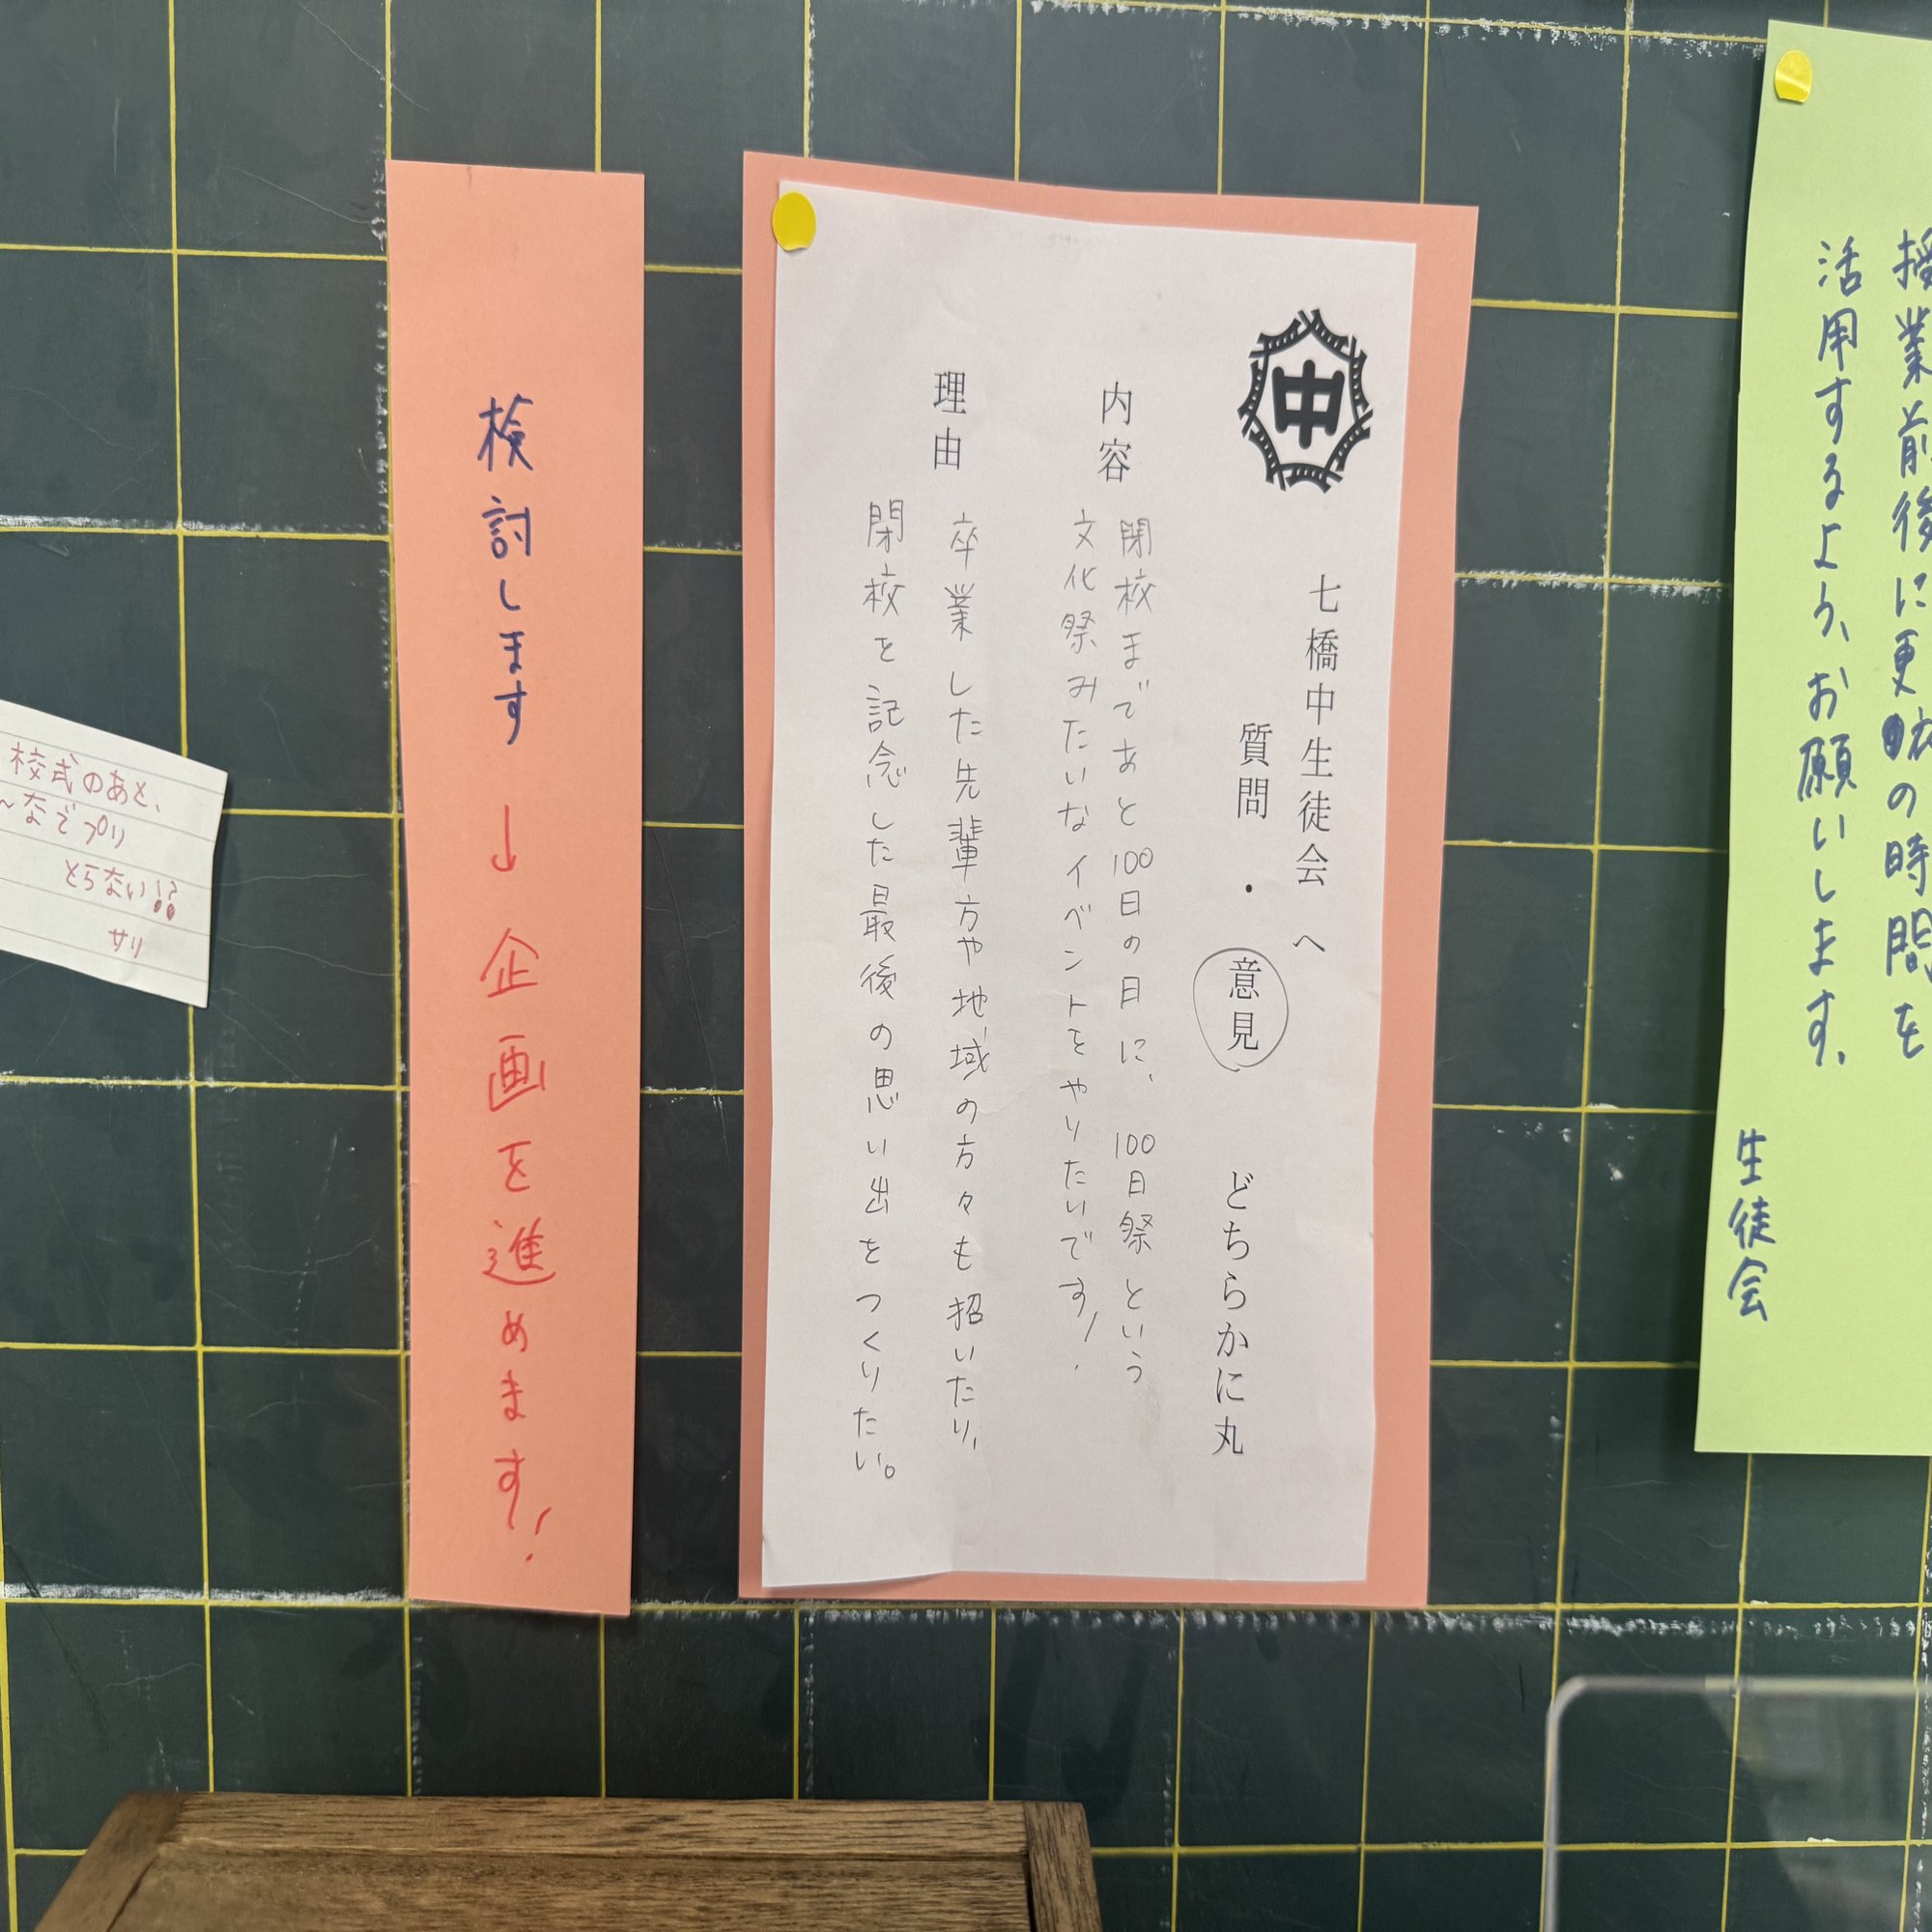 授業前後に更衣の時間を
活用するよう、お願いします。
生徒会
中
七橋中生徒会へ
質問・意見 どちらかに丸
内容
閉校まであと100日の日に、100日祭という
文化祭みたいなイベントをやりたいです!
理由
卒業した先輩方や地域の方々も招いたり、
閉校を記念した最後の思い出をつくりたい。
検討します→企画を進めます!
校式のあと、
なでプリ
とらない!?
サリ